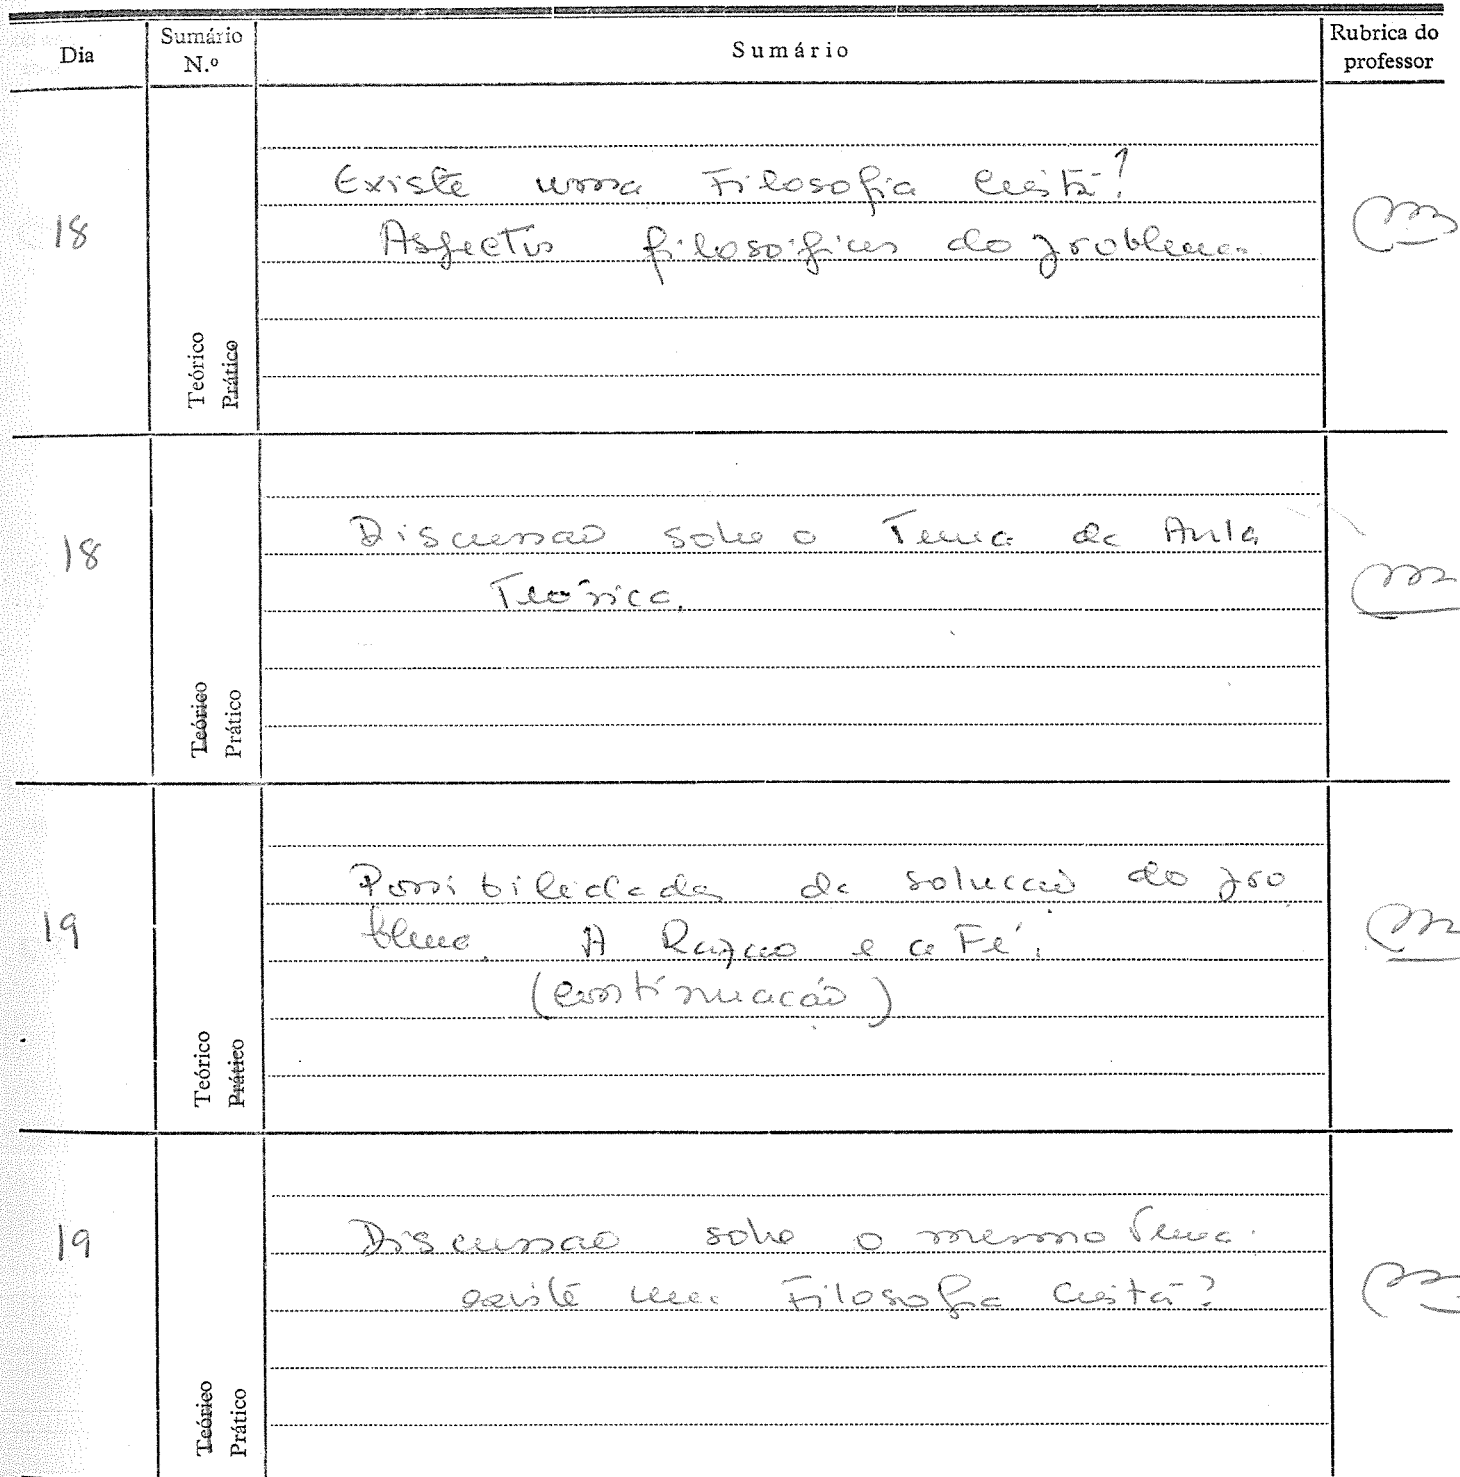 Dia
Sumário
N.º
Sumário
Rubrica do
professor
18
Existe uma Filosofia Cristã?
Aspectos filosóficos do problema.
Teórico
Prático
18
Discussão sobre o Tema da Aula
Teórica.
Teórico
Prático
19
Possibilidades de solucção do pro
blema. A Razão e a Fé.
(continuação)
Teórico
Prático
19
Discussão sobre o mesmo Tema.
existe uma Filosofia Cristã?
Teórico
Prático